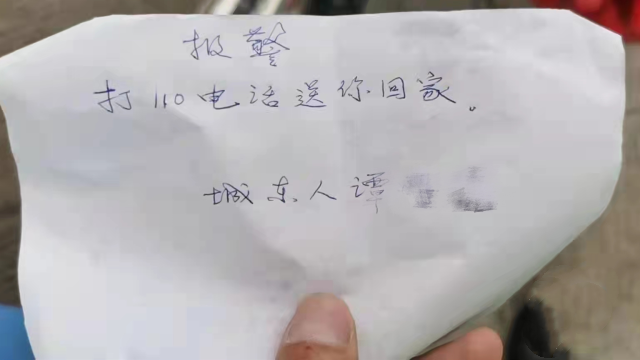 报警
打110电话送你回家。
城东人谭